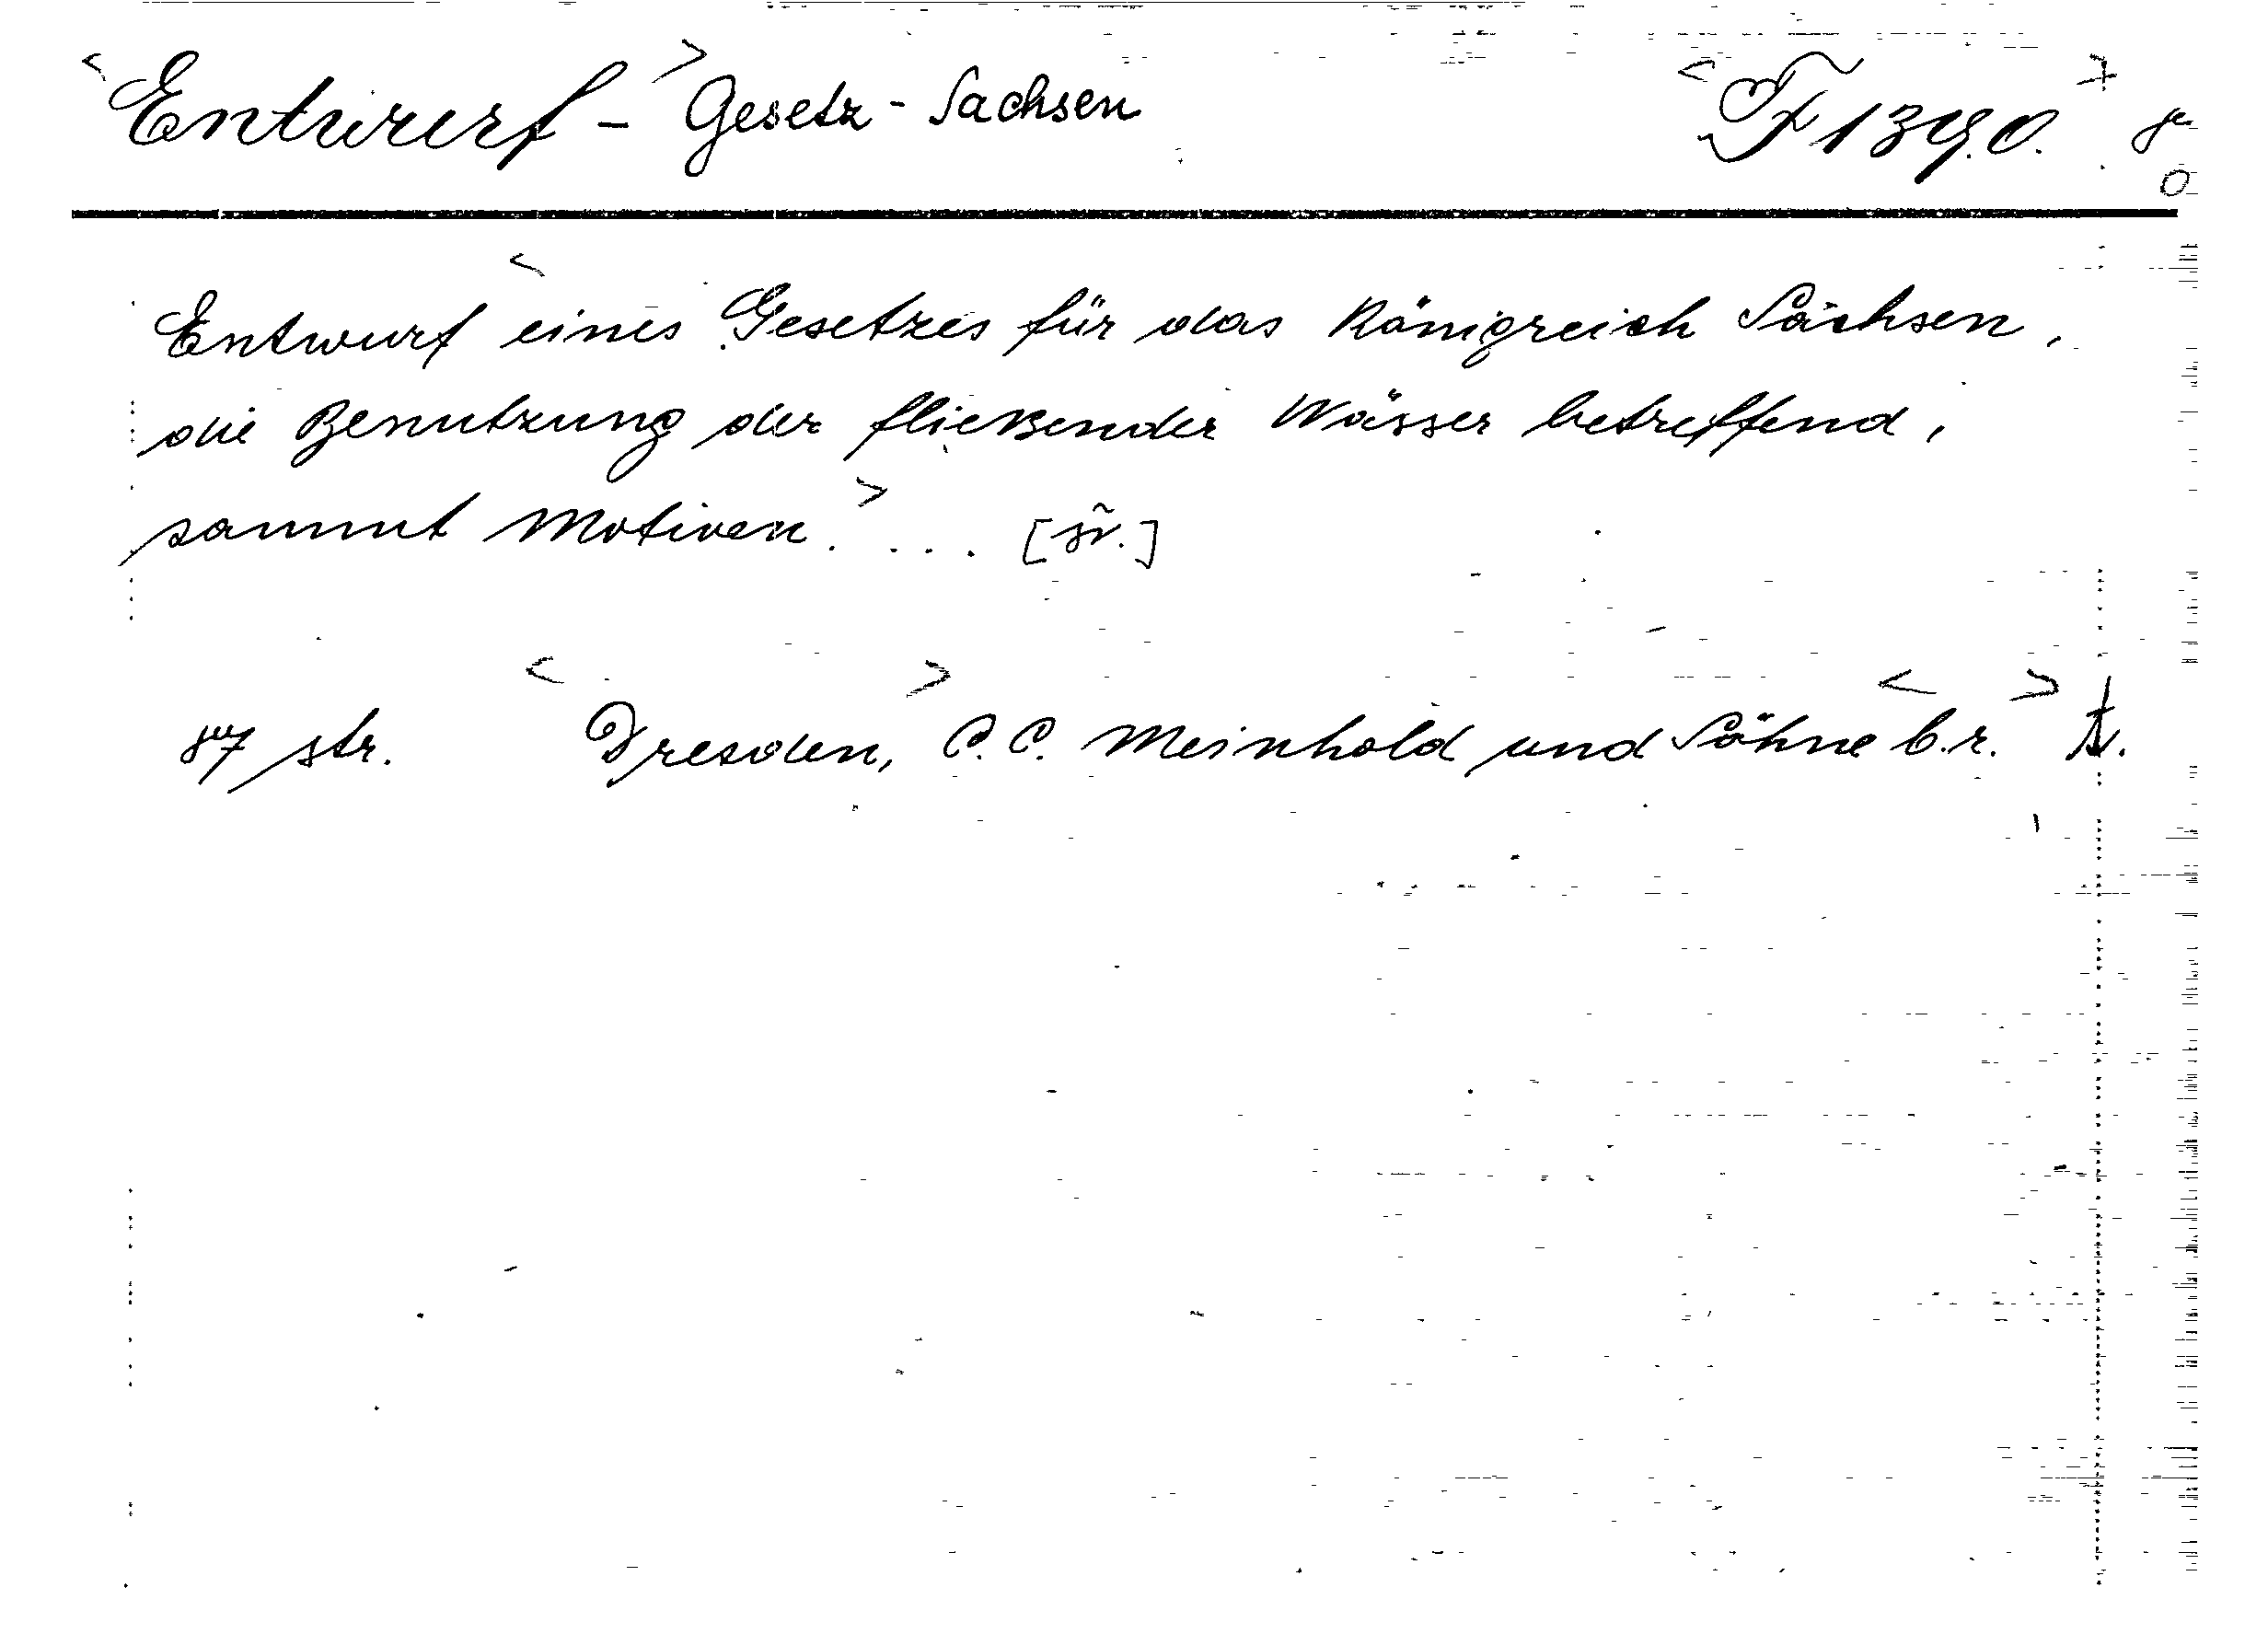 Entwurf - Gesetz - Sachsen F 1390.
Entwurf eines Gesetzes für das Königreich Sachsen,
die Benutzung der fließender Wässer betreffend,
sammt Motiven. ...
87 str. Dresden, C. C. Meinhold und Söhne b.r. tv.